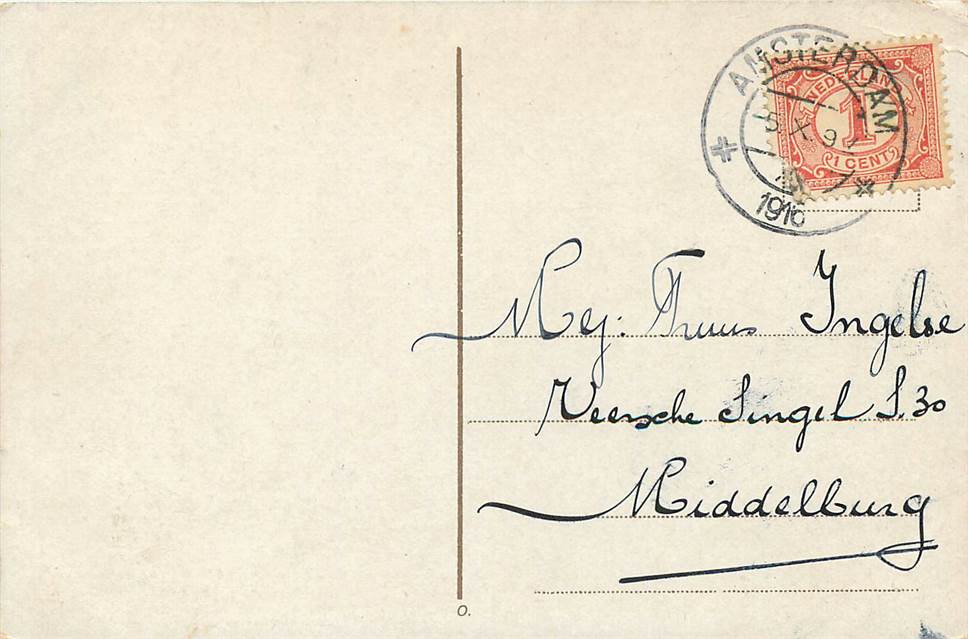 AMSTERDAM
NEDERLAND
1
1 CENT
1916
Mej: Truus Ingelse
Veersche Singel S. 30
Middelburg
O.